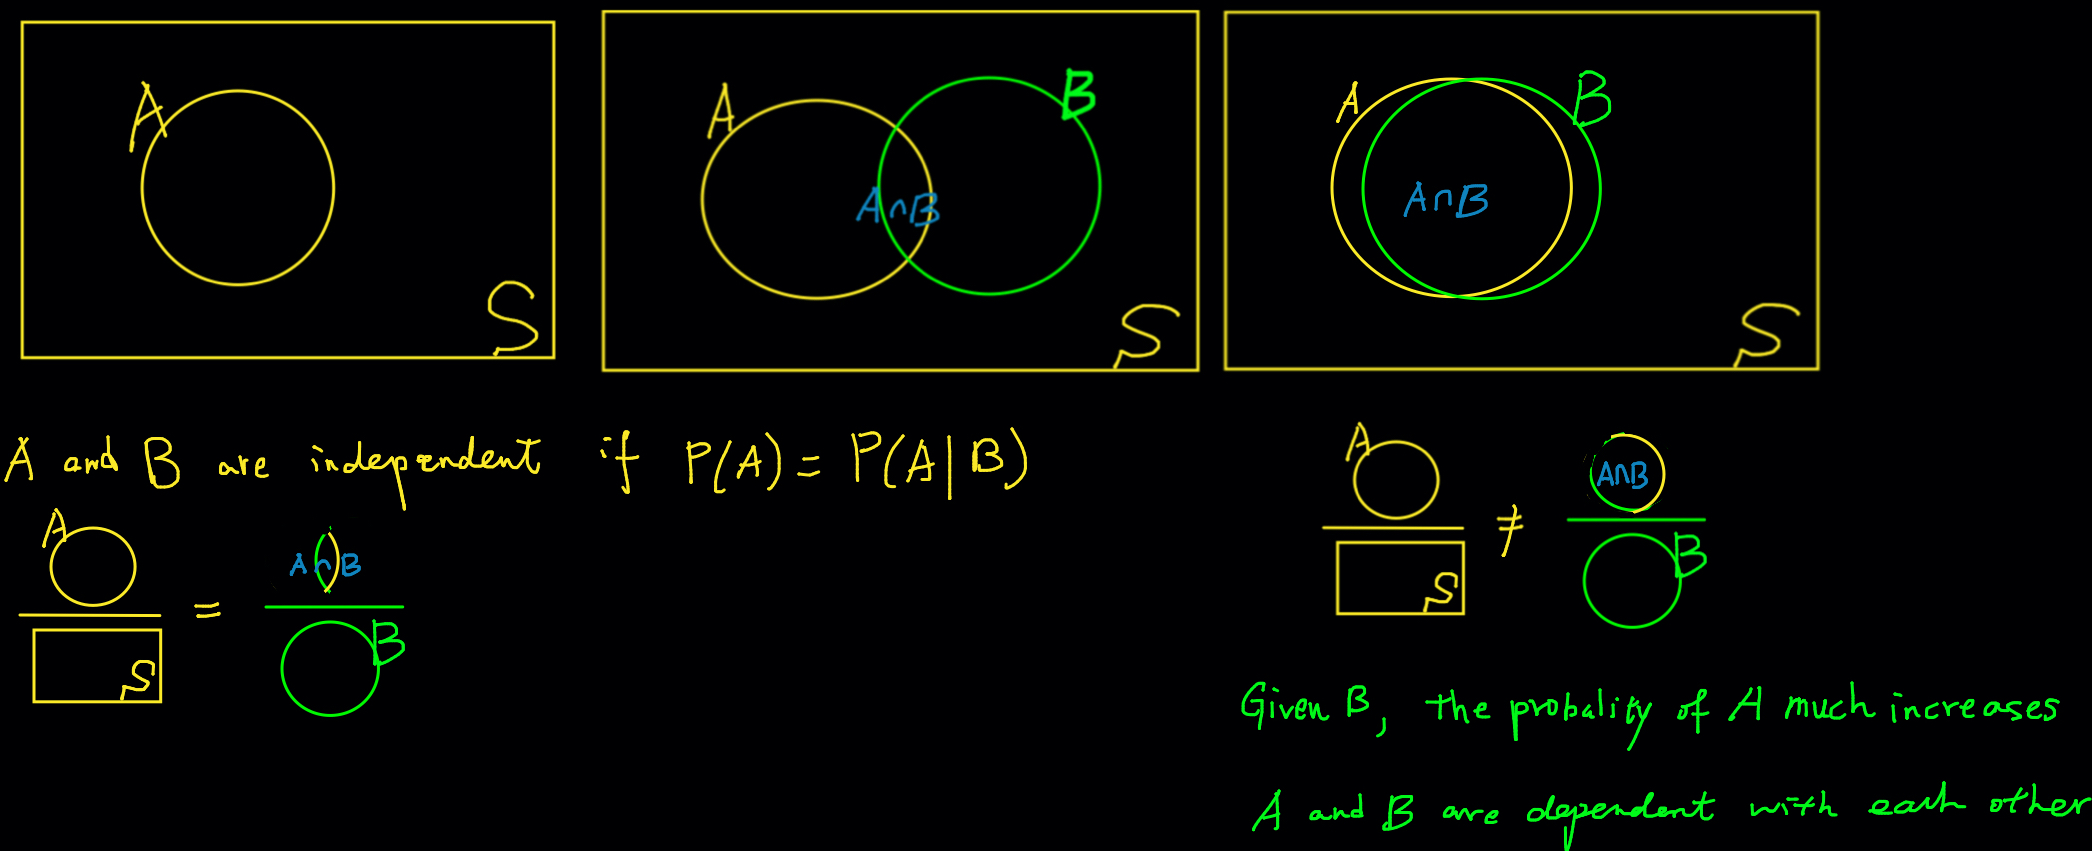 A
S
A
B
A∩B
S
A
B
A∩B
S
A and B are independent if P(A) = P(A|B)
A
S
=
A∩B
B
A
S
≠
A∩B
B
Given B, the probality of A much increases
A and B are dependent with each other